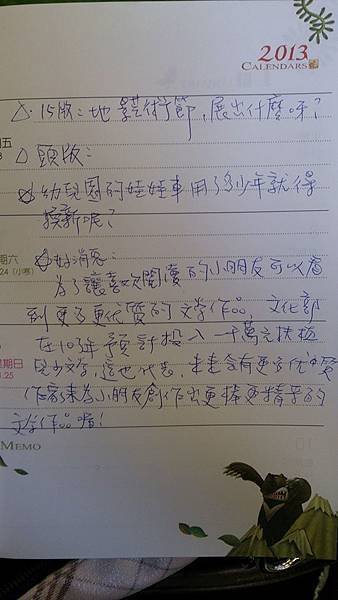 2013
CALENDARS
△. 15版:地景藝術節,展出什麼呀?
五
△ 頭版:
☆ 幼兒園的娃娃車用了多少年就得
換新呢?
期六
24 (小寒)
☆好消息:
為了讓喜歡閱讀的小朋友可以看
到更多更優質的文學作品,文化部
在103年預計投入一千萬元扶植
星期日
1.25
兒少文學,這也代表,未來會有更多優質
作家來為小朋友創作出更棒更精采的
文學作品喔!
MEMO
10